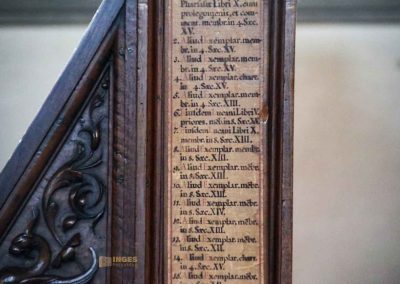 Pharsaliæ Libri X. cum
prolegomenis, et com
ment. membr. in 4. Sæc.
XV.
2. Aliud Exemplar. mem
br. in 4. Sæc. XV.
3. Aliud Exemplar. mem
br. in 4. Sæc. XV.
4. Aliud Exemplar. chart.
in 4. Sæc. XV.
5. Aliud Exemplar. mem
br. in 4. Sæc. XIII.
6. Eiusdem Libri V.
priores. in 5. Sæc. XV.
7. Eiusdem Lucani Libri X.
membr. in 5. Sæc. XIII.
8. Aliud Exemplar. membr.
in 5. Sæc. XIII.
9. Aliud Exemplar. mēbr.
in 5. Sæc. XIII.
10. Aliud Exemplar. mēbr.
in 5. Sæc. XIII.
11. Aliud Exemplar. mēbr.
in 5. Sæc. XIV.
12. Aliud Exemplar. mēbr.
in 5. Sæc. XIII.
13. Aliud Exemplar. mēbr.
in 5. Sæc. XIII.
14. Aliud Exemplar. chart.
in 4. Sæc. XV.
15. Aliud Exemplar. mēbr.
INGES